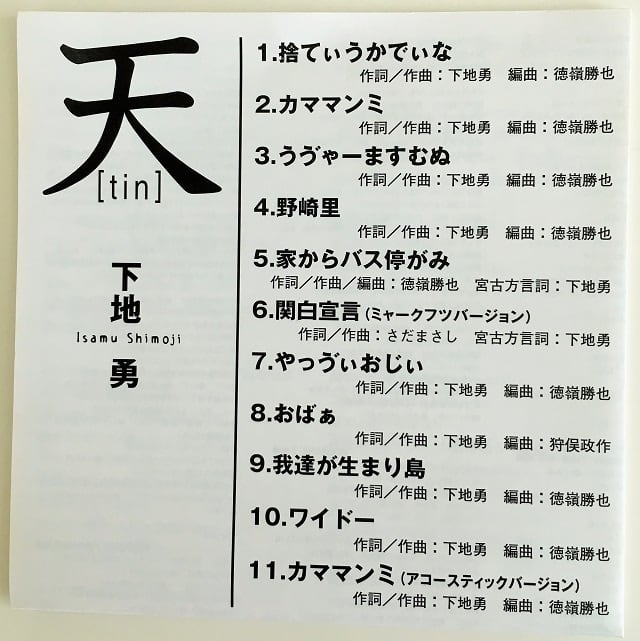 天
[tin]
下地
Isamu Shimoji
勇
1.捨てぃうかでぃな
作詞／作曲：下地勇　編曲：徳嶺勝也
2.カママンミ
作詞／作曲：下地勇　編曲：徳嶺勝也
3.うゔゃーますむぬ
作詞／作曲：下地勇　編曲：徳嶺勝也
4.野崎里
作詞／作曲：下地勇　編曲：徳嶺勝也
5.家からバス停がみ
作詞／作曲／編曲：徳嶺勝也　宮古方言詞：下地勇
6.関白宣言（ミャークフツバージョン）
作詞／作曲：さだまさし　宮古方言詞：下地勇
7.やっゔぃおじぃ
作詞／作曲：下地勇　編曲：徳嶺勝也
8.おばぁ
作詞／作曲：下地勇　編曲：狩俣政作
9.我達が生まり島
作詞／作曲：下地勇　編曲：徳嶺勝也
10.ワイドー
作詞／作曲：下地勇　編曲：徳嶺勝也
11.カママンミ（アコースティックバージョン）
作詞／作曲：下地勇　編曲：徳嶺勝也